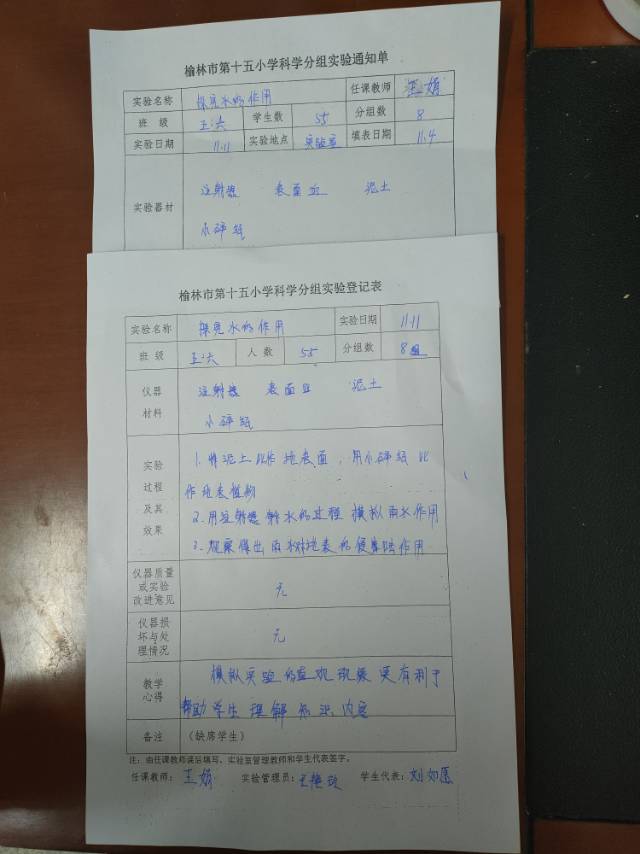 榆林市第十五小学科学分组实验通知单
实验名称 探究水的作用 任课教师 王娟
班 级 五.六 学生数 55 分组数 8
实验日期 11.11 实验地点 实验室 填表日期 11.4
实验器材 注射器 表面皿 泥土
小碎纸
榆林市第十五小学科学分组实验登记表
实验名称 探究水的作用 实验日期 11.11
班 级 五.六 人 数 55 分组数 8组
仪器
材料
注射器 表面皿 泥土
小碎纸
实验
过程
及其
效果
1.将泥土比作地表面,用小碎纸比
作地表植物
2.用注射器射水的过程模拟雨水作用
3.观察得出雨水对地表的侵蚀作用
仪器质量
或实验
改进意见
无
仪器损
坏与处
理情况
无
教学
心得
模拟实验的直观现象更有利于
帮助学生理解知识内容
备注 (缺席学生)
注:由任课教师课后填写、实验室管理教师和学生代表签字。
任课教师: 王娟 实验管理员: 学生代表:刘如愿